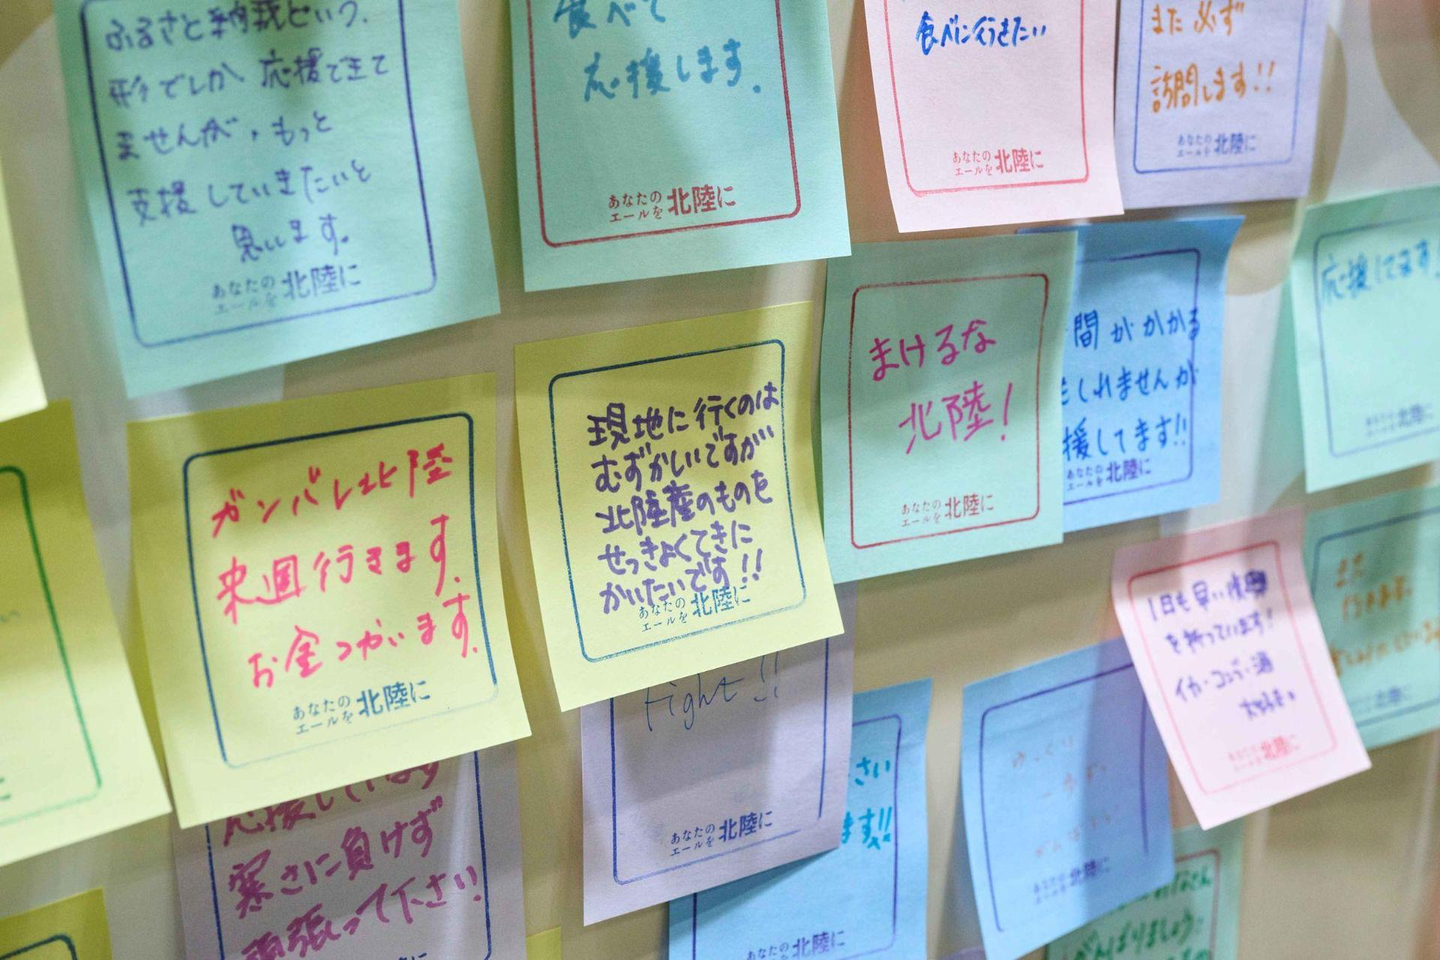 ふるさと納税という
形でしか 応援できて
ませんが、もっと
支援していきたいと
思います。
あなたの
エールを 北陸に
食べて
応援します。
あなたの
エールを 北陸に
食べに行きたい
あなたの
エールを 北陸に
また 必ず
訪問します!!
あなたの
エールを 北陸に
ガンバレ北陸
来週行きます。
お金つかいます。
あなたの
エールを 北陸に
現地に行くのは
むずかしいですが
北陸産のものを
せっきょくてきに
かいたいです!!
あなたの
エールを 北陸に
まけるな
北陸!
あなたの
エールを 北陸に
間がかかる
もしれませんが
援してます!!
あなたの
エールを 北陸に
応援してます!
あなたの
エールを 北陸に
1日も早い復興
を祈っています!
イカ・コンブ・酒
大好き。
あなたの
エールを 北陸に
また
行きます。
北陸に
応援しています
寒さに負けず
頑張って下さい!
fight!!
あなたの
エールを 北陸に
さい
ます!!
あなたの
エールを 北陸に
ゆっくり
あなたの
エールを 北陸に
がんばりましょう